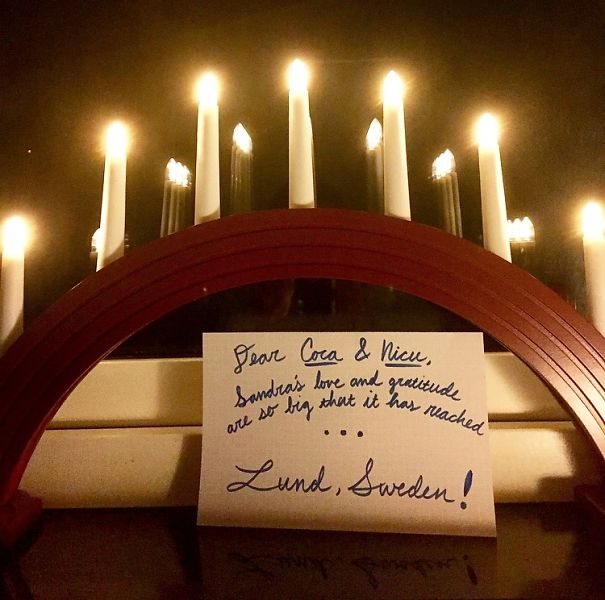 Dear Coca & Nicu,
Sandra's love and gratitude
are so big that it has reached
...
Lund, Sweden!